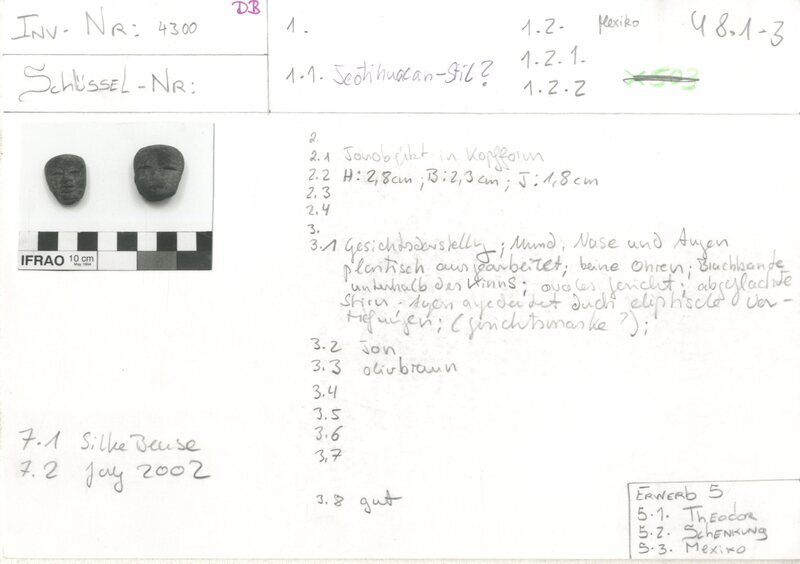 DB
INV-NR: 4300
SCHLÜSSEL-NR:
1.
1.1. Teotihuacan-Stil?
1.2. Mexiko
1.2.1.
1.2.2
48.1-3
IFRAO 10 cm
2.
2.1 Tonobjekt in Kopfform
2.2 H: 2,8cm; B: 2,3cm; T: 1,8cm
2.3
2.4
3.
3.1 Gesichtsdarstellg; Mund, Nase und Augen
plastisch ausgearbeitet; keine Ohren; Bruchkante
unterhalb des Kinns; ovales Gesicht; abgeflachte
Stirn - Augen angedeutet duch eliptische Ver-
tiefungen; (Gesichtsmaske?);
3.2 Ton
3.3 olivbraun
3.4
3.5
3.6
3.7
3.8 gut
7.1 Silke Beuse
7.2 July 2002
ERWERB 5
5.1. THEODOR
5.2. SCHENKUNG
5.3. MEXIKO